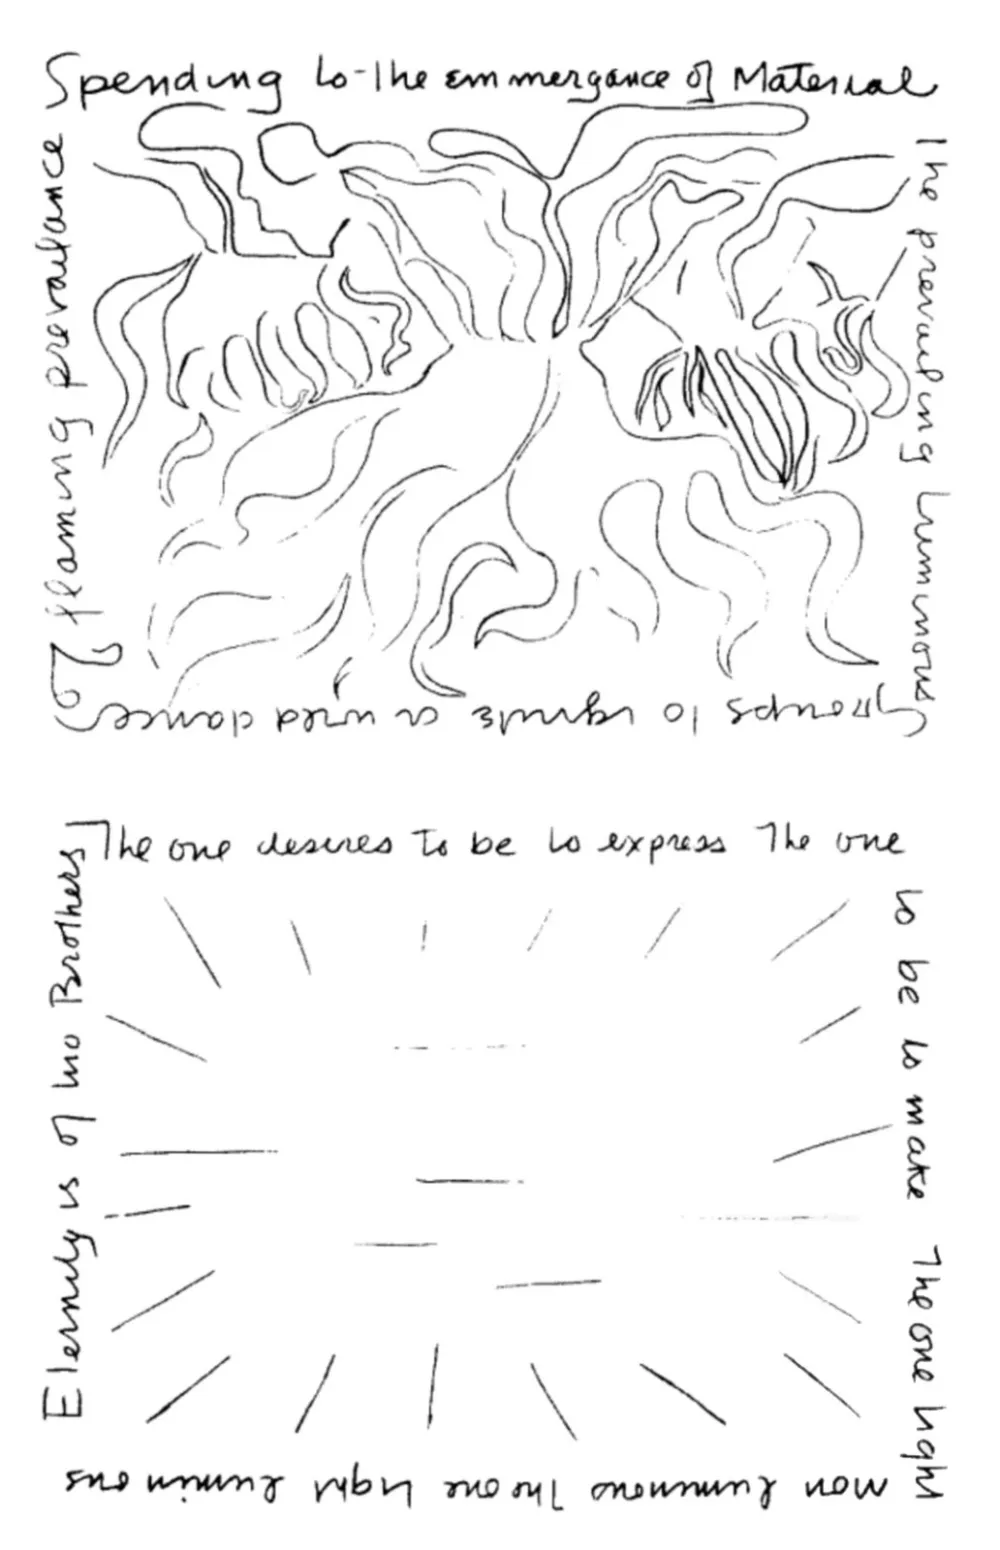 Spending to-the emmergance of Material
The prevailing Luminous
groups to ignite a wired dance
of flaming prevailance
The one desires to be to express The one
to be to make The one light
luminous The one light lumin ous
Eternity is of two Brothers